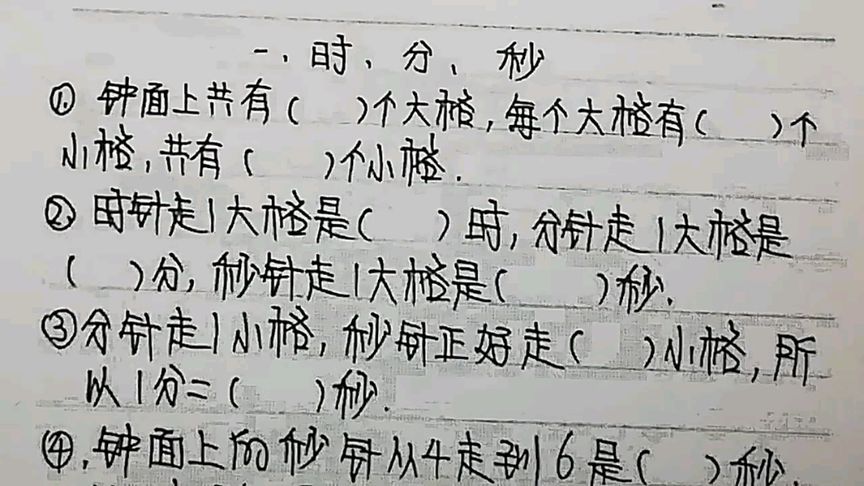 一、时、分、秒
① 钟面上共有(  )个大格,每个大格有(  )个
小格,共有(  )个小格.
② 时针走1大格是(  )时,分针走1大格是
(  )分,秒针走1大格是(  )秒.
③分针走1小格,秒针正好走(  )小格,所
以1分=(  )秒.
④.钟面上的秒针从4走到6是(  )秒.